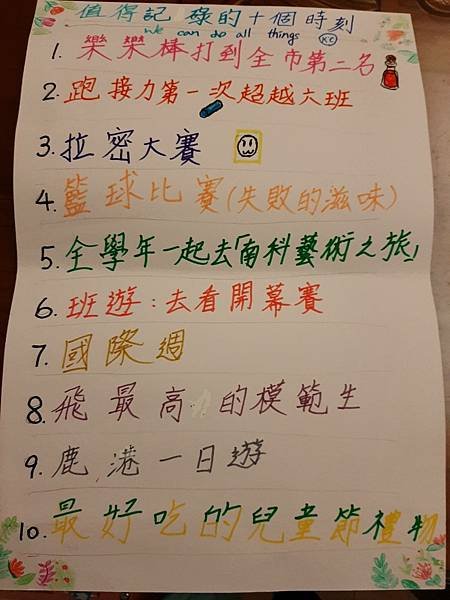 值得記錄的十個時刻
We can do all things
1. 樂樂棒打到全市第二名
2. 跑接力第一次超越六班
3. 拉密大賽
4. 籃球比賽(失敗的滋味)
5. 全學年一起去「南科藝術之旅」
6. 班遊:去看開幕賽
7. 國際週
8. 飛最高的模範生
9. 鹿港一日遊
10. 最好吃的兒童節禮物